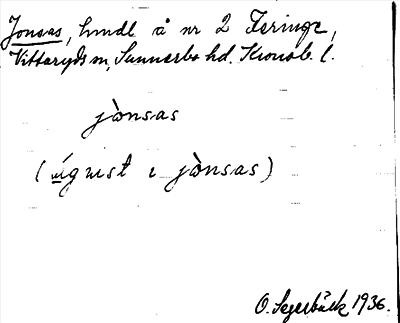 Jonsas, hmdl å nr 2 Feringe,
Vittaryds sn, Sunnerbo hd. Kronob. l.
jònsas
(ígust i jònsas)
O. Segerbäck 1936.